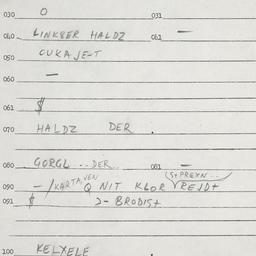 030 O 031
040 LINKSER HALDZ 061 —
050 OUKAJE-T
060 —
061 $
070 HALDZ DER .
080 GORGL .. DER.. 081 —
(STPREYN ...
090 — /KARTA,VEN Q NIT KLOR REJDT
091 $ 2- BRODIST
100 KELXELE .